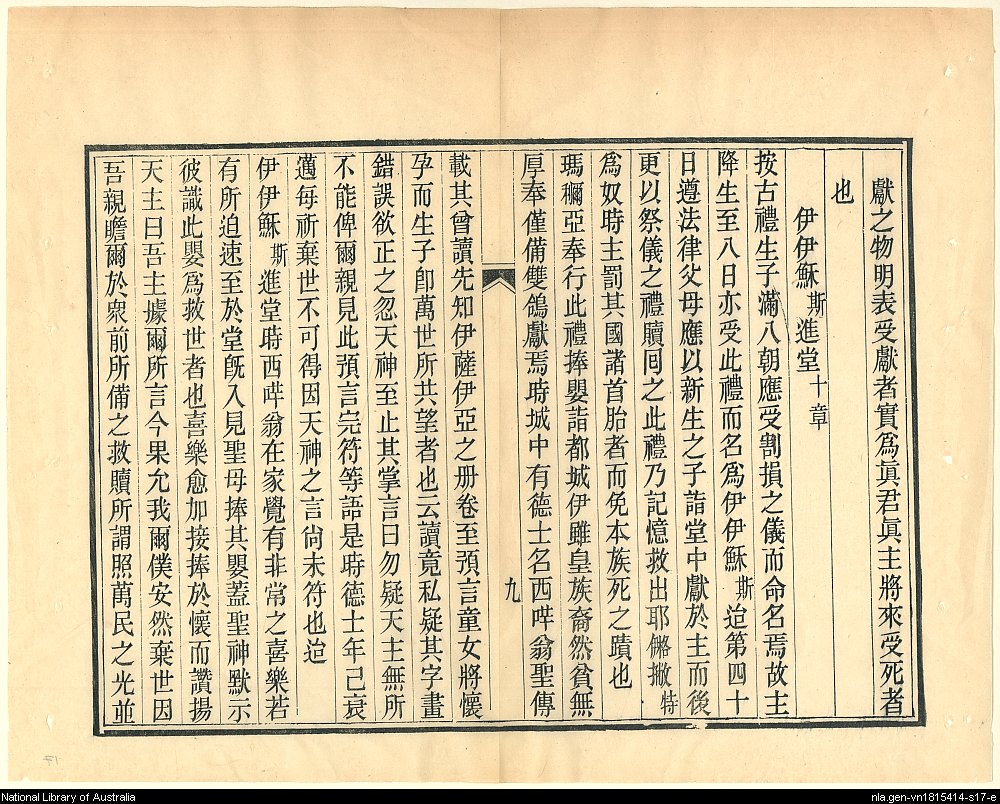 獻之物明表受獻者實爲眞君眞主將來受死者
也
伊伊穌斯進堂十章
按古禮生子滿八朝應受割損之儀而命名焉故主
降生至八日亦受此禮而名爲伊伊穌斯迨第四十
日遵法律父母應以新生之子詣堂中獻於主而後
更以祭儀之禮贖囘之此禮乃記憶救出耶㒇撇特
爲奴時主罰其國諸首胎者而免本族死之蹟也
瑪穪亞奉行此禮捧嬰詣都城伊雖皇族裔然貧無
厚奉僅備雙鴿獻焉時城中有德士名西哶翁聖傳
九
載其曾讀先知伊薩伊亞之册卷至預言童女將懷
孕而生子卽萬世所共望者也云讀竟私疑其字畫
錯誤欲正之忽天神至止其掌言曰勿疑天主無所
不能俾爾親見此預言完符等語是時德士年已衰
邁每祈棄世不可得因天神之言尙未符也迨
伊伊穌斯進堂時西哶翁在家覺有非常之喜樂若
有所迫速至於堂旣入見聖母捧其嬰蓋聖神默示
彼識此嬰爲救世者也喜樂愈加接捧於懷而讚揚
天主曰吾主據爾所言今果允我爾僕安然棄世因
吾親瞻爾於衆前所備之救贖所謂照萬民之光並
National Library of Australia
nla.gen-vn1815414-s17-e